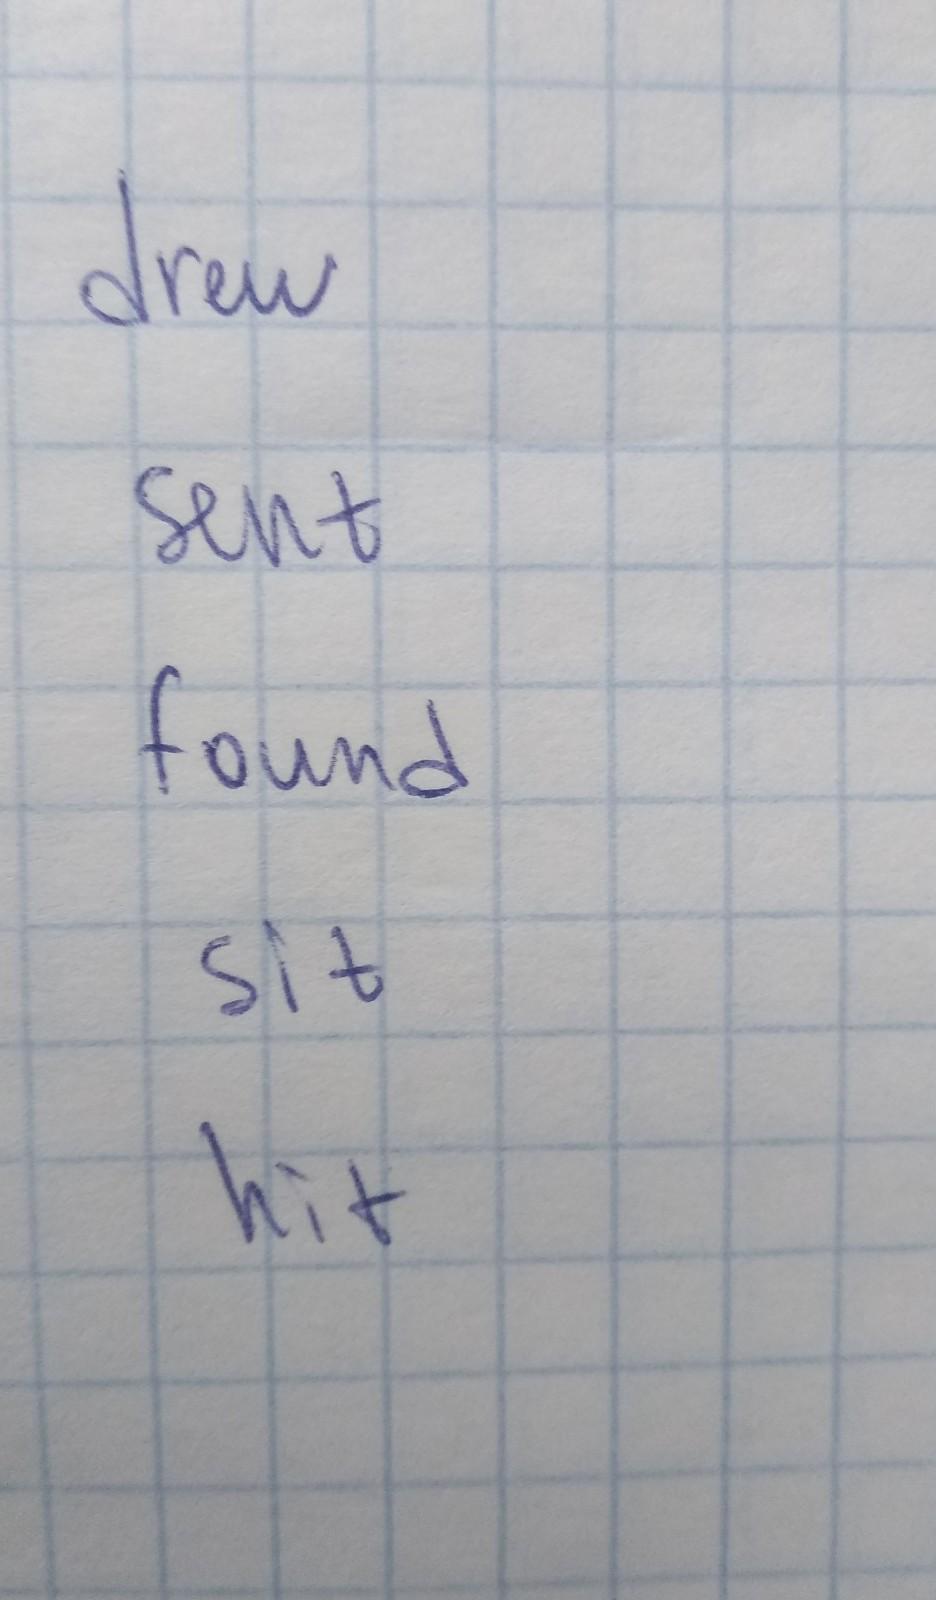 drew
sent
found
sit
hit